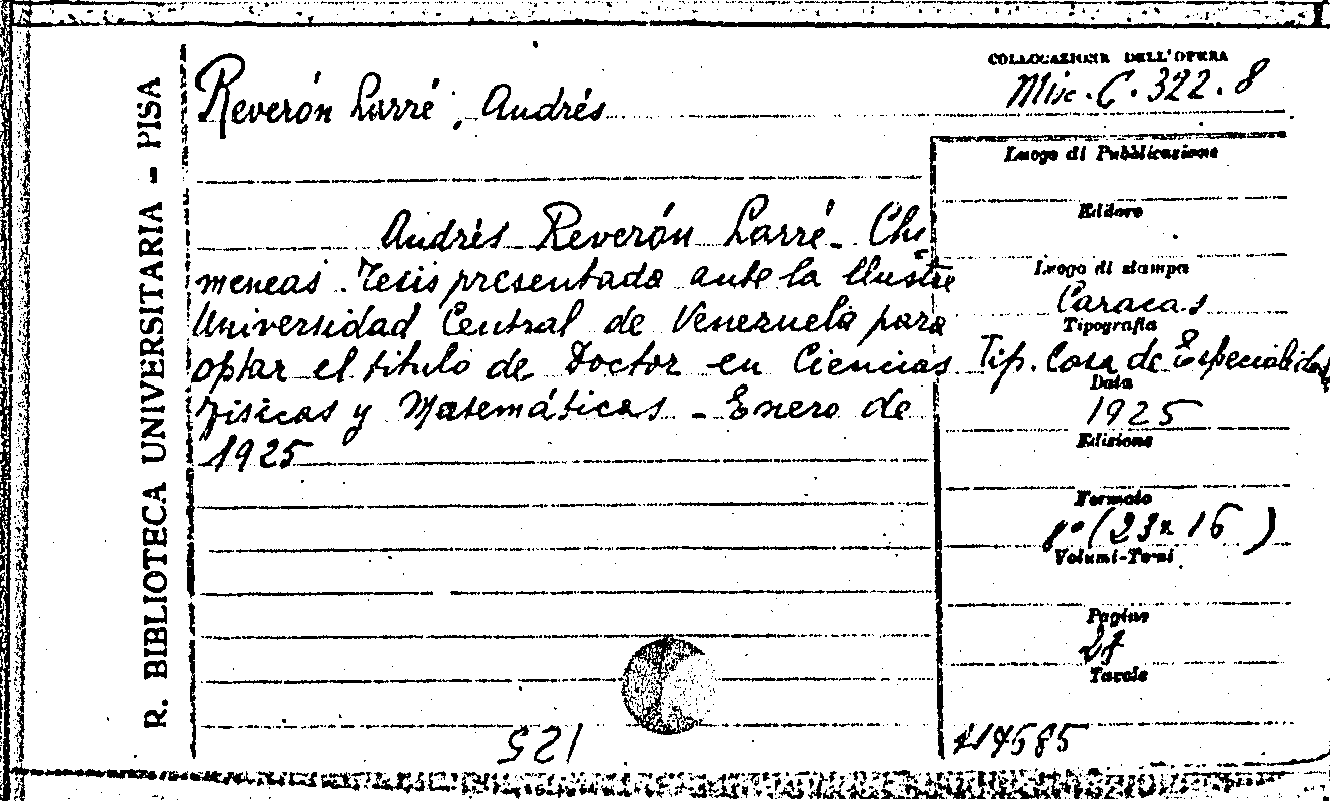 R. BIBLIOTECA UNIVERSITARIA - PISA
Reverón Larré, Andrés
COLLOCAZIONE DELL'OPERA
Misc. C. 322. 8
Andrés Reverón Larré - Chi
meneas. Tesis presentada ante la Ilustre
Universidad Central de Venezuela para
optar el titulo de Doctor en Ciencias
Fisicas y Matemáticas - Enero de
1925
Luogo di Pubblicazione
Editore
Luogo di stampa
Caracas
Tipografia
Tip. Casa de Especialidad
Data
1925
Edizione
Formato
8° (23x16)
Volumi-Tomi
Pagine
Tavole
521